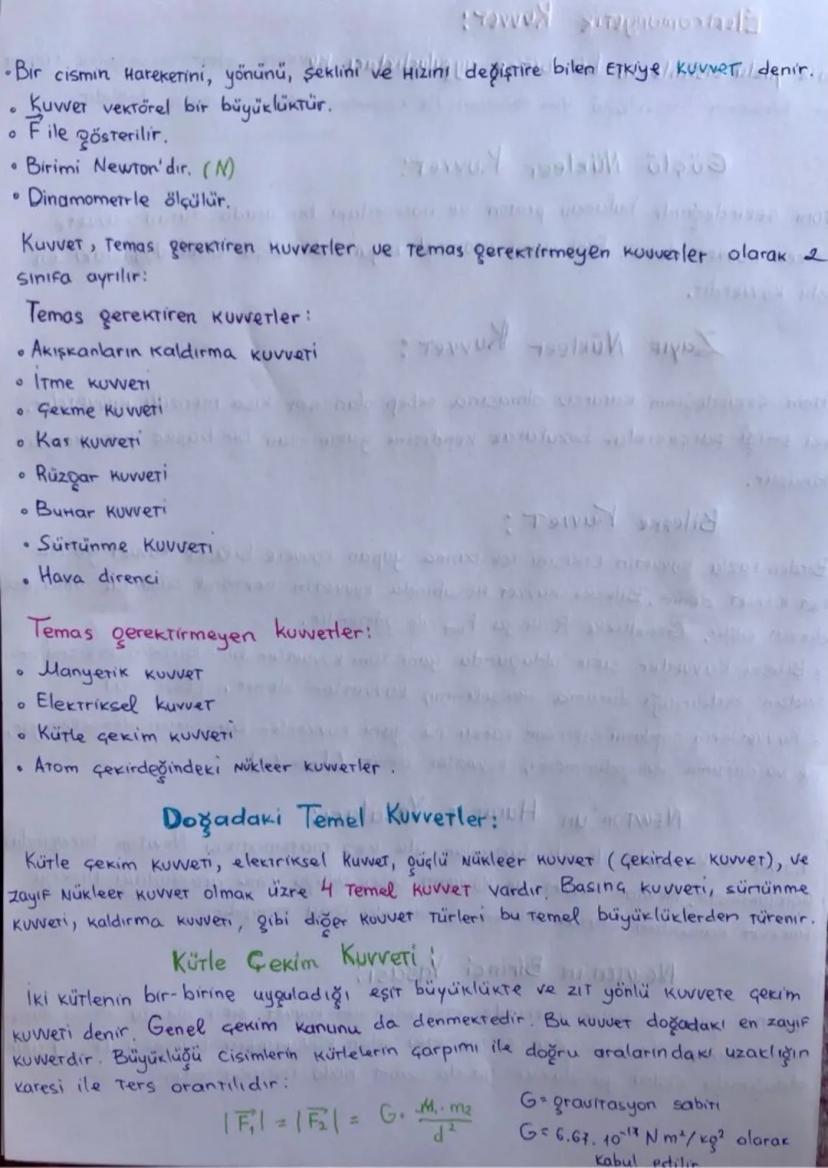 • Bir cismin Hareketini, yönünü, şeklini ve Hızını değiştire bilen Etkiye kuvvet denir.
• Kuvvet vektörel bir büyüklüktür.
• F ile gösterilir.
• Birimi Newton'dır. (N)
• Dinamometrle ölçülür.
Kuvvet, Temas gerektiren kuvvetler ve Temas gerektirmeyen kuvvetler olarak 2
sınıfa ayrılır:
Temas gerektiren kuvvetler:
• Akışkanların kaldırma kuvveti
• İtme kuvveti
• Çekme kuvveti
• Kas kuvveti
• Rüzgar kuvveti
• Buhar kuvveti
• Sürtünme kuvveti
• Hava direnci
Temas gerektirmeyen kuvvetler:
• Manyetik kuvvet
• Elektriksel kuvvet
• Kütle çekim kuvveti
• Atom çekirdeğindeki Nükleer kuvvetler.
Doğadaki Temel Kuvvetler:
Kütle çekim kuvveti, elektriksel kuvvet, güçlü Nükleer kuvvet (çekirdek kuvvet), ve
zayıf Nükleer kuvvet olmak üzre 4 Temel kuvvet vardır. Basınç kuvveti, sürtünme
kuvveti, kaldırma kuvveti, gibi diğer kuvvet Türleri bu temel büyüklüklerden türenir.
Kütle Çekim Kuvveti:
İki kütlenin bir-birine uyguladığı eşit büyüklükte ve zıt yönlü kuvvete çekim
kuvveti denir. Genel çekim kanunu da denmektedir. Bu kuvvet doğadaki en zayıf
kuvvetdir. Büyüklüğü cisimlerin kütlelerin çarpımı ile doğru aralarındaki uzaklığın
karesi ile Ters orantılıdır:
|F₁| = |F₂| = G. M₁.m₂ / d²
G= gravitasyon sabiti
G= 6.67. 10⁻¹¹ N m²/kg² olarak
kabul edilir